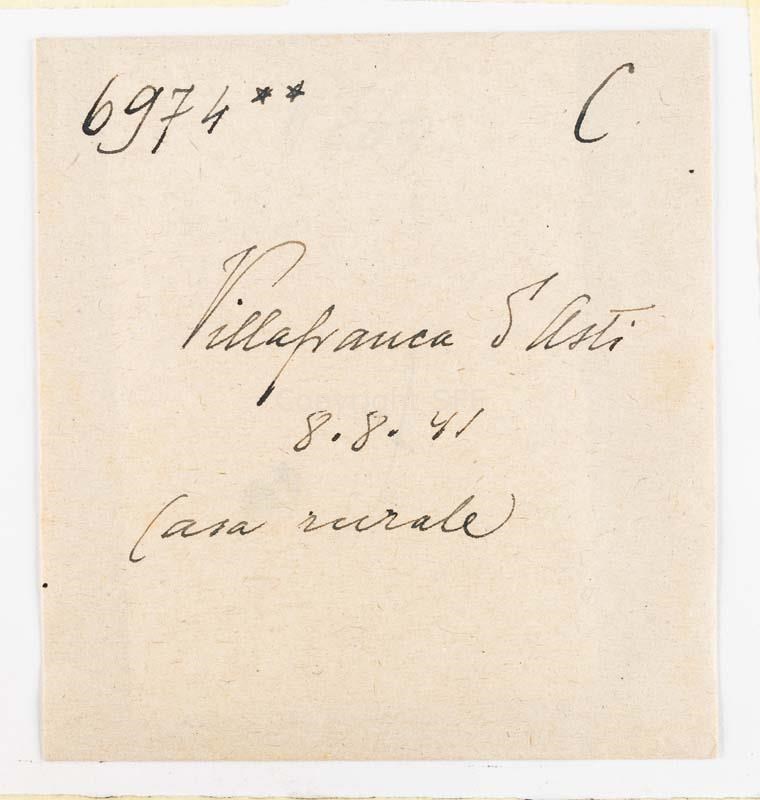 6974** C
Villafranca d'Asti
8.8.41
Casa rurale